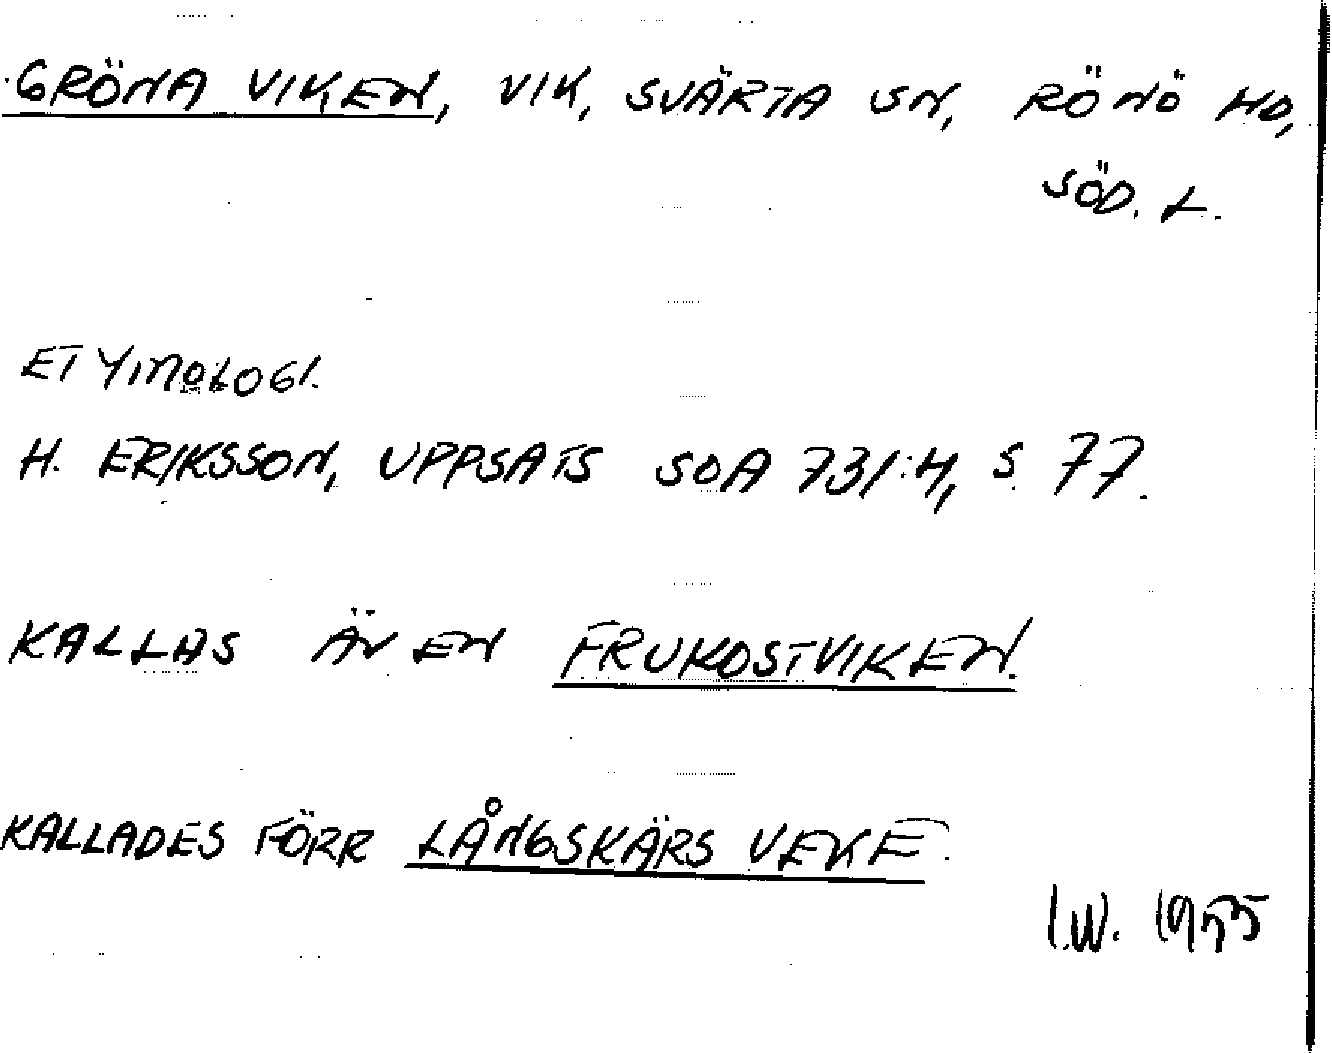 GRÖNA VIKEN, VIK, SVÄRTA SN, RÖNÖ HD,
SÖD. L.
ETYMOLOGI.
H. ERIKSSON, UPPSATS SOA 731:H, S. 77.
KALLAS ÄVEN FRUKOSTVIKEN.
KALLADES FÖRR LÅNGSKÄRS VEKE.
I.W. 1975